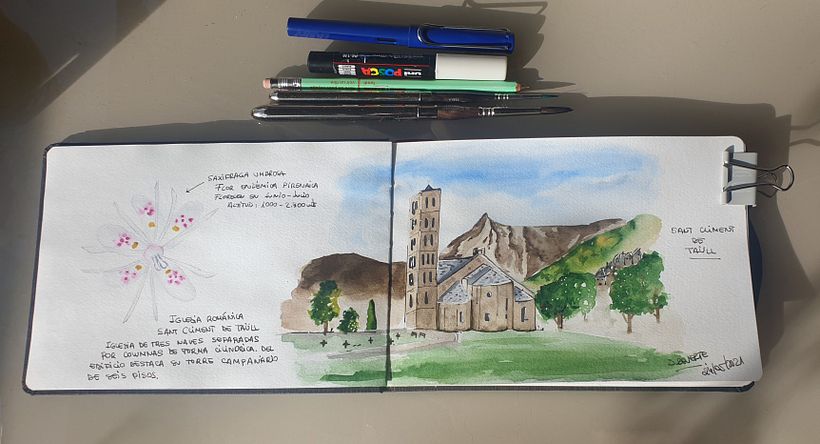 uni POSCA
SAXIFRAGA UMBROSA
FLOR ENDÉMICA PIRENAICA
FLORECE EN JUNIO-JULIO
ALTITUD: 1000-2.400 m
SANT CLIMENT
DE
TAÜLL
IGLESIA ROMÁNICA
SANT CLIMENT DE TAÜLL
IGLESIA DE TRES NAVES SEPARADAS
POR COLUMNAS DE FORMA CILÍNDRICA. DEL
EDIFICIO DESTACA SU TORRE CAMPANARIO
DE SEIS PISOS.